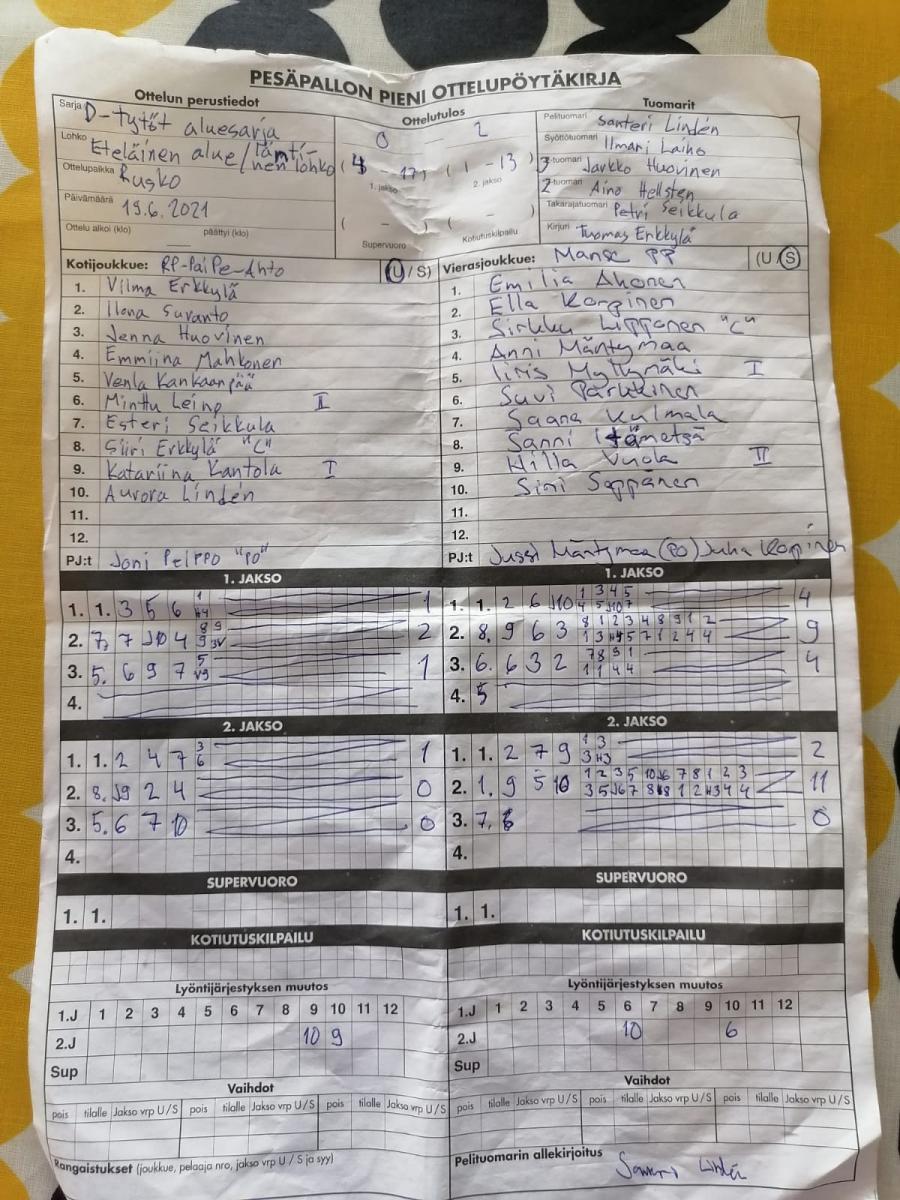 PESÄPALLON PIENI OTTELUPÖYTÄKIRJA
Ottelun perustiedot
Sarja D-tytöt aluesarja
Lohko Eteläinen alue/läntinen lohko
Ottelupaikka Rusko
Päivämäärä 19.6.2021
Ottelu alkoi (klo) päättyi (klo)
Ottelutulos
0 - 2
(4 - 17) (1 - 13)
1. jakso 2. jakso
( - ) ( - )
Supervuoro Kotiutuskilpailu
Tuomarit
Pelituomari Santeri Lindén
Syöttötuomari Ilmari Laiho
3-tuomari Jarkko Huovinen
2-tuomari Aino Hellsten
Takarajatuomari Petri Seikkula
Kirjuri Tuomas Erkkylä
Kotijoukkue: RP-PaiPe-Ahto (U/S)
1. Vilma Erkkylä
2. Ilona Suvanto
3. Jenna Huovinen
4. Emmiina Mahkonen
5. Venla Kankaanpää
6. Minttu Leino II
7. Esteri Seikkula
8. Siiri Erkkylä "C"
9. Katariina Kantola I
10. Aurora Lindén
11.
12.
PJ:t Joni Peippo "PO"
Vierasjoukkue: Manse PP (U/S)
1. Emilia Ahonen
2. Ella Korpinen
3. Sirkku Lipponen "C"
4. Anni Mäntymaa
5. Iiris Myllymäki I
6. Suvi Pärkkinen
7. Saana Kulmala
8. Sanni Itämetsä
9. Hilla Vuola II
10. Sini Seppänen
11.
12.
PJ:t Jussi Mäntymaa (PO) Juha Korpinen
1. JAKSO
1. 1. 3 5 6 1
2. 7. 7 10 4 2
3. 5. 6 9 7 1
4.
2. JAKSO
1. 1. 2 4 7 3 6 1
2. 8. 9 2 4 0
3. 5. 6 7 10 0
4.
SUPERVUORO
1. 1.
KOTIUTUSKILPAILU
Lyöntijärjestyksen muutos
1.J 1 2 3 4 5 6 7 8 9 10 11 12
2.J 10 9
Sup
Vaihdot
pois tilalle Jakso vrp U/S pois tilalle Jakso vrp U/S pois tilalle Jakso vrp U/S
Rangaistukset (joukkue, pelaaja nro, jakso vrp U / S ja syy)
1. JAKSO
1. 1. 2 6 10 1 3 4 5 4
2. 8. 9 6 3 8 1 2 3 4 8 9 1 2 9
3. 6. 6 3 2 7 8 9 1 1 1 4 4 4
4. 5
2. JAKSO
1. 1. 2 7 9 1 3 2
2. 1. 9 5 10 1 2 3 5 10 6 7 8 1 2 3 11
3. 7. 0
4.
SUPERVUORO
1. 1.
KOTIUTUSKILPAILU
Lyöntijärjestyksen muutos
1.J 1 2 3 4 5 6 7 8 9 10 11 12
2.J 10 6
Sup
Vaihdot
pois tilalle Jakso vrp U/S pois tilalle Jakso vrp U/S pois tilalle Jakso vrp U/S
Pelituomarin allekirjoitus Santeri Lindén